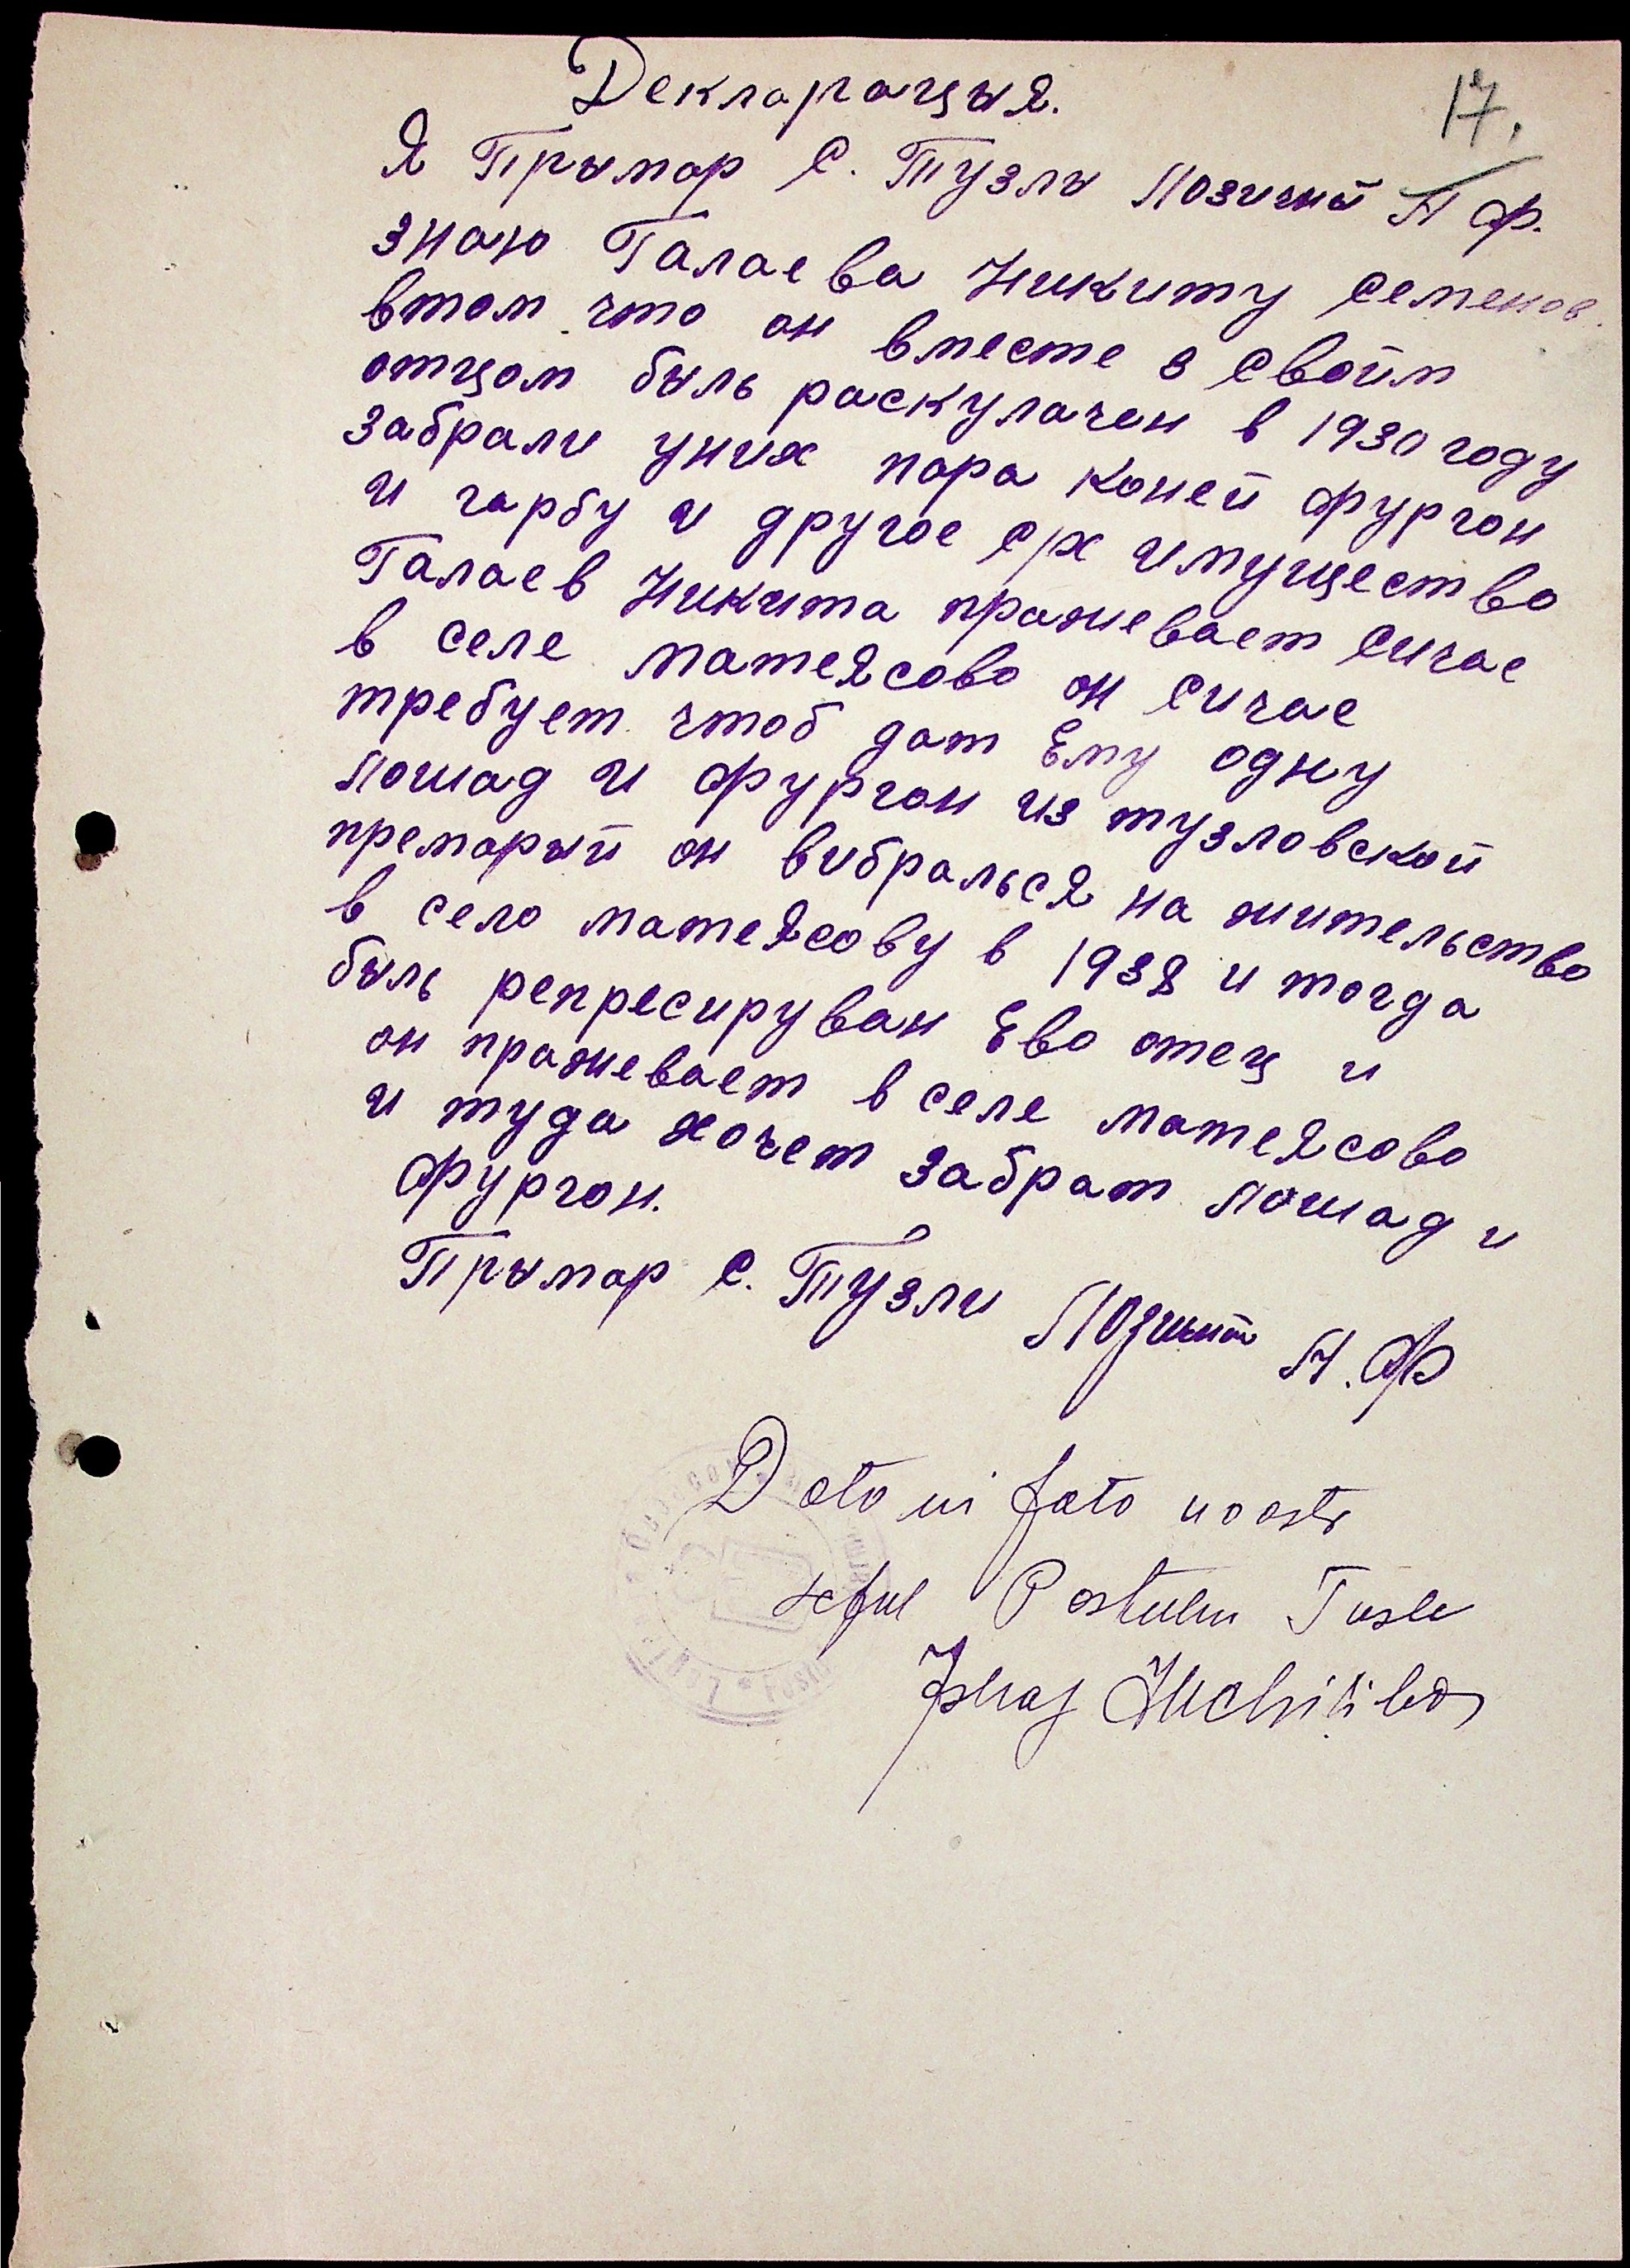 Декларацыя.
17.
Я Прымар С. Тузлы Лозичный Н Ф.
знаю Галаева Никиту Семенов.
втом что он вместе з свойм
отцом быль раскулачен в 1930 году
забрали уних пара коней фургон
и гарбу и другое с/х имущество
Галаев Никита праживает сичас
в селе матеясово он сичас
требует чтоб дат Ему одну
лошад и фургон из тузловской
премарый он вибралься на жительство
в село матеясову в 1938 и тогда
быль репресируван Ево отец и
он праживает в селе матеясово
и туда хочет забрат лошад и
фургон.
Прымар С. Тузли Лозичный Н. Ф
Data in fata noastr
seful Postului Tusle